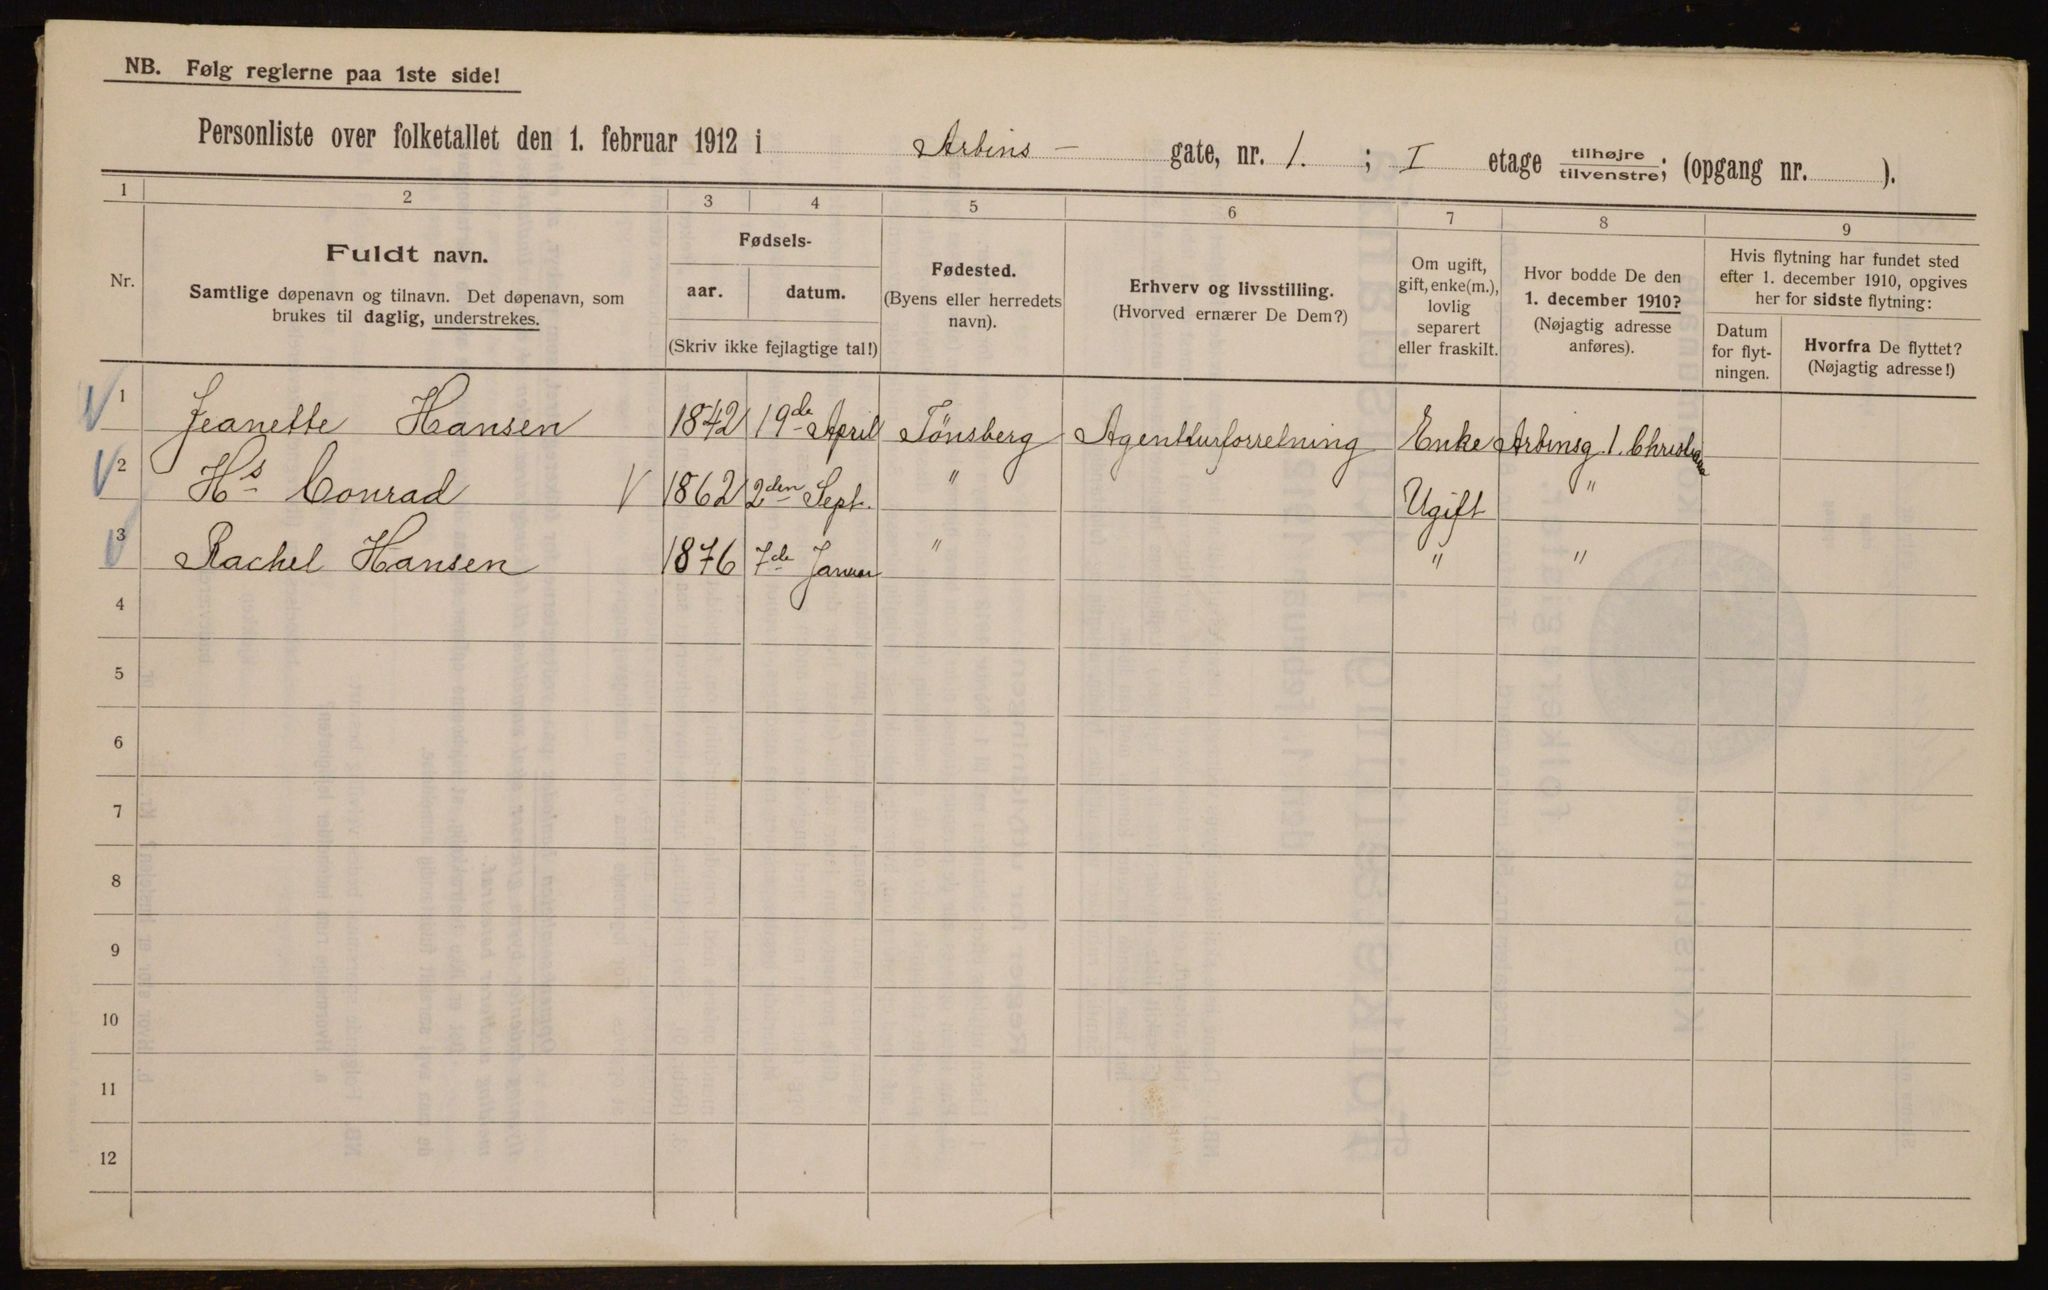 NB. Følg reglerne paa 1ste side!
Personliste over folketallet den 1. februar 1912 i Arbins – gate, nr. 1. ; I etage tilhøjre/tilvenstre; (opgang nr. ).
1 2 3 4 5 6 7 8 9
Nr.
Fuldt navn.
Samtlige døpenavn og tilnavn. Det døpenavn, som
brukes til daglig, understrekes.
Fødsels-
aar. datum.
(Skriv ikke fejlagtige tal!)
Fødested.
(Byens eller herredets
navn).
Erhverv og livsstilling.
(Hvorved ernærer De Dem?)
Om ugift,
gift, enke(m.),
lovlig
separert
eller fraskilt.
Hvor bodde De den
1. december 1910?
(Nøjagtig adresse
anføres).
Hvis flytning har fundet sted
efter 1. december 1910, opgives
her for sidste flytning:
Datum
for flyt-
ningen.
Hvorfra De flyttet?
(Nøjagtig adresse!)
1 Jeanette Hansen 1842 19de April Tönsberg Agentturforretning Enke Arbinsg. 1. Christiania
2 Hs Conrad V 1862 2den Sept. " Ugift "
3 Rachel Hansen 1876 7de Januar " " "
4
5
6
7
8
9
10
11
12